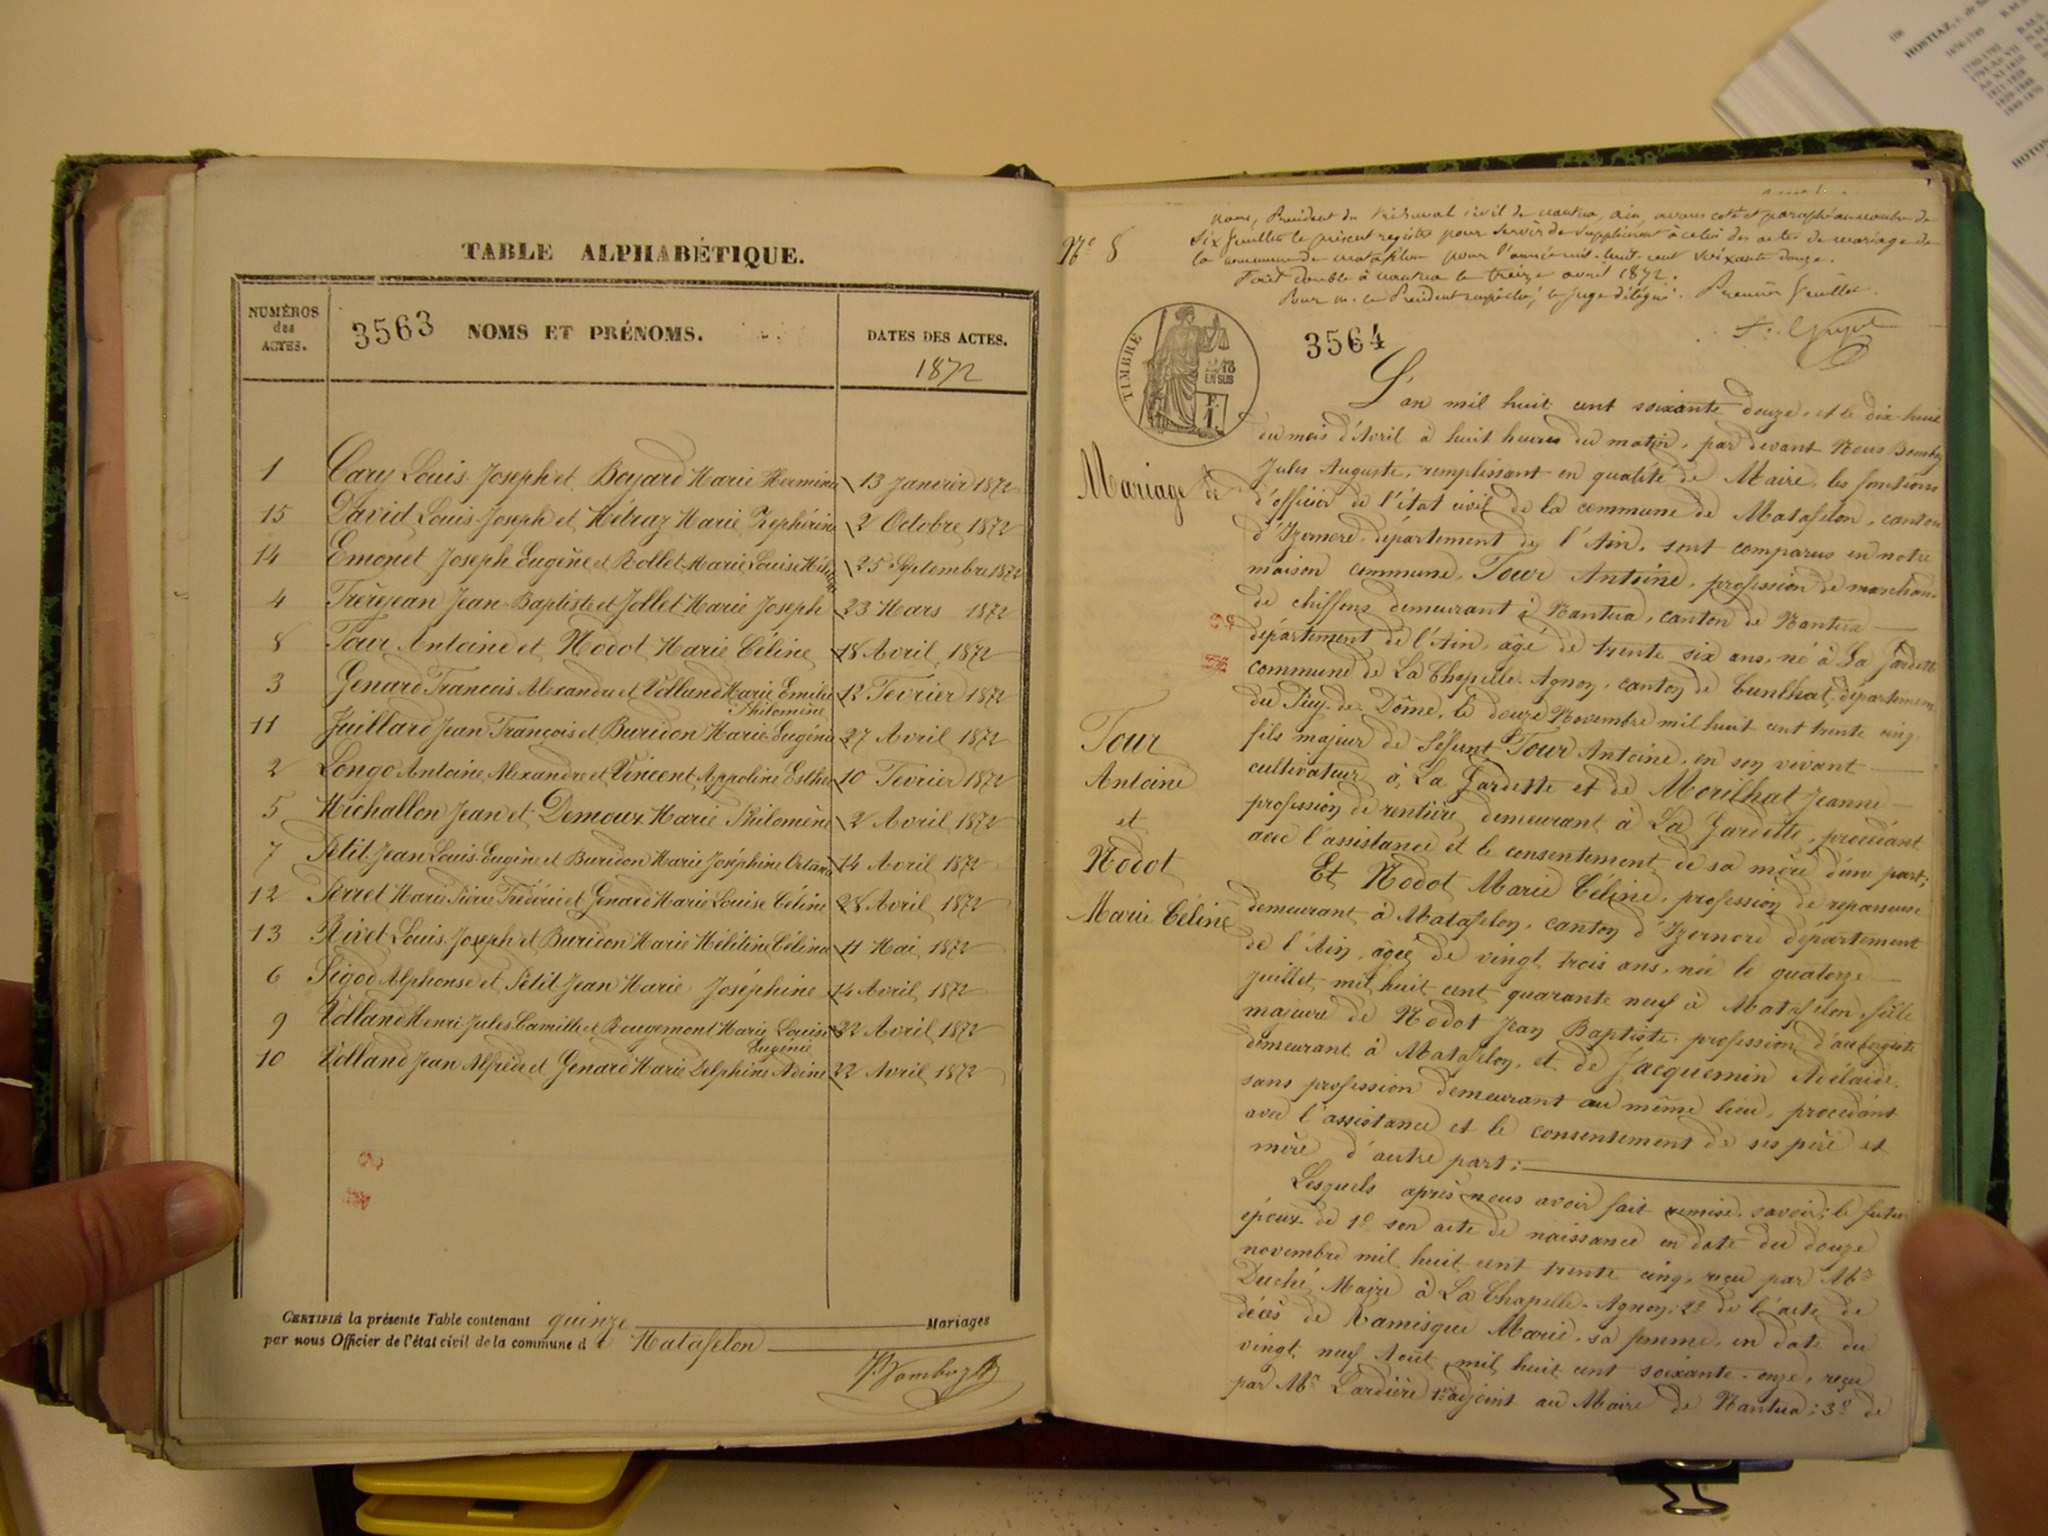 TABLE ALPHABÉTIQUE.
NUMÉROS des ACTES.
3563 NOMS ET PRÉNOMS.
DATES DES ACTES.
1872
1 Cary Louis Joseph et Boyard Marie Hermine 13 Janvier 1872
15 David Louis Joseph et Métraz Marie Zephérine 2 Octobre 1872
14 Emonet Joseph Eugène et Rollet Marie Louise 25 Septembre 1872
4 Frèrejean Jean Baptiste et Jollet Marie Joseph 23 Mars 1872
8 Four Antoine et Nodot Marie Céline 18 Avril 1872
3 Genard François Alexandre et Volland Marie Emilie Philomène 12 Fevrier 1872
11 Juillard Jean François et Buridon Marie Eugénie 27 Avril 1872
2 Longo Antoine Alexandre et Vincent Appoline Esther 10 Fevrier 1872
5 Michallon Jean et Demoux Marie Philomène 2 Avril 1872
7 Petit Jean Louis Eugène et Buridon Marie Joséphine 14 Avril 1872
12 Perret Marie Pierre Frédéric et Genard Marie Louise Céline 28 Avril 1872
13 Rivet Louis Joseph et Buridon Marie Célina 11 Mai 1872
6 Pigod Alphonse et Petit Jean Marie Joséphine 14 Avril 1872
9 Volland Henri Jules Camille et Rougemont Marie Louise Eugénie 22 Avril 1872
10 Volland Jean Alfred et Genard Marie Delphine Adine 22 Avril 1872
CERTIFIÉ la présente Table contenant quinze Mariages
par nous Officier de l'état civil de la commune d e Matafelon
Nº 8
Nous, Président du tribunal civil de nantua, ain, avons coté et paraphé au nombre de
Six feuillets le présent registre pour servir de supplément à celui des actes de mariage de
la commune de matafelon pour l'année mil-huit-cent soixante douze.
Fait double à nantua le treize avril 1872.
Pour m. le Président empêché, le juge délégué. Premier feuillet.
TIMBRE
EN SUS
3564
L'an mil huit cent soixante douze, et le dix-huit
du mois d'Avril à huit heures du matin, par devant Nous
Mariage de
Jules Auguste, remplissant en qualité de Maire, les fonctions
d'officier de l'état civil de la commune de Matafelon, canton
d'Izernore, département de l'Ain, sont comparus en notre
maison commune, Four Antoine, profession de marchand
de chiffons demeurant à Nantua, canton de Nantua
département de l'Ain, âgé de trente six ans, né à La Jardette
commune de La Chapelle-Agnon, canton de Cunlhat, département
du Puy-de-Dôme, le douze Novembre mil huit cent trente cinq
fils majeur de défunt Four Antoine, en son vivant
cultivateur à La Jardette et de Morilhat Jeanne
profession de rentière demeurant à La Jardette, procédant
avec l'assistance et le consentement de sa mère d'une part;
Four
Antoine
et
Nodot
Marie Céline
Et Nodot Marie Céline, profession de repasseuse
demeurant à Matafelon, canton d'Izernore département
de l'Ain, âgée de vingt trois ans, née le quatorze
juillet mil huit cent quarante neuf à Matafelon, fille
majeure de Nodot Jean Baptiste, profession d'aubergiste
demeurant à Matafelon, et de Jacquemin Adélaïde
sans profession demeurant au même lieu, procédant
avec l'assistance et le consentement de ses père et
mère d'autre part;
Lesquels après nous avoir fait remise, savoir; le futur
époux de 1º son acte de naissance en date du douze
novembre mil huit cent trente cinq, reçu par Mr
Duché, Maire à La Chapelle-Agnon; 2º de l'acte de
décès de Ramisque Marie, sa femme, en date du
vingt neuf Août mil huit cent soixante-onze, reçu
par Mr Lardière 1er adjoint au Maire de Nantua; 3º de